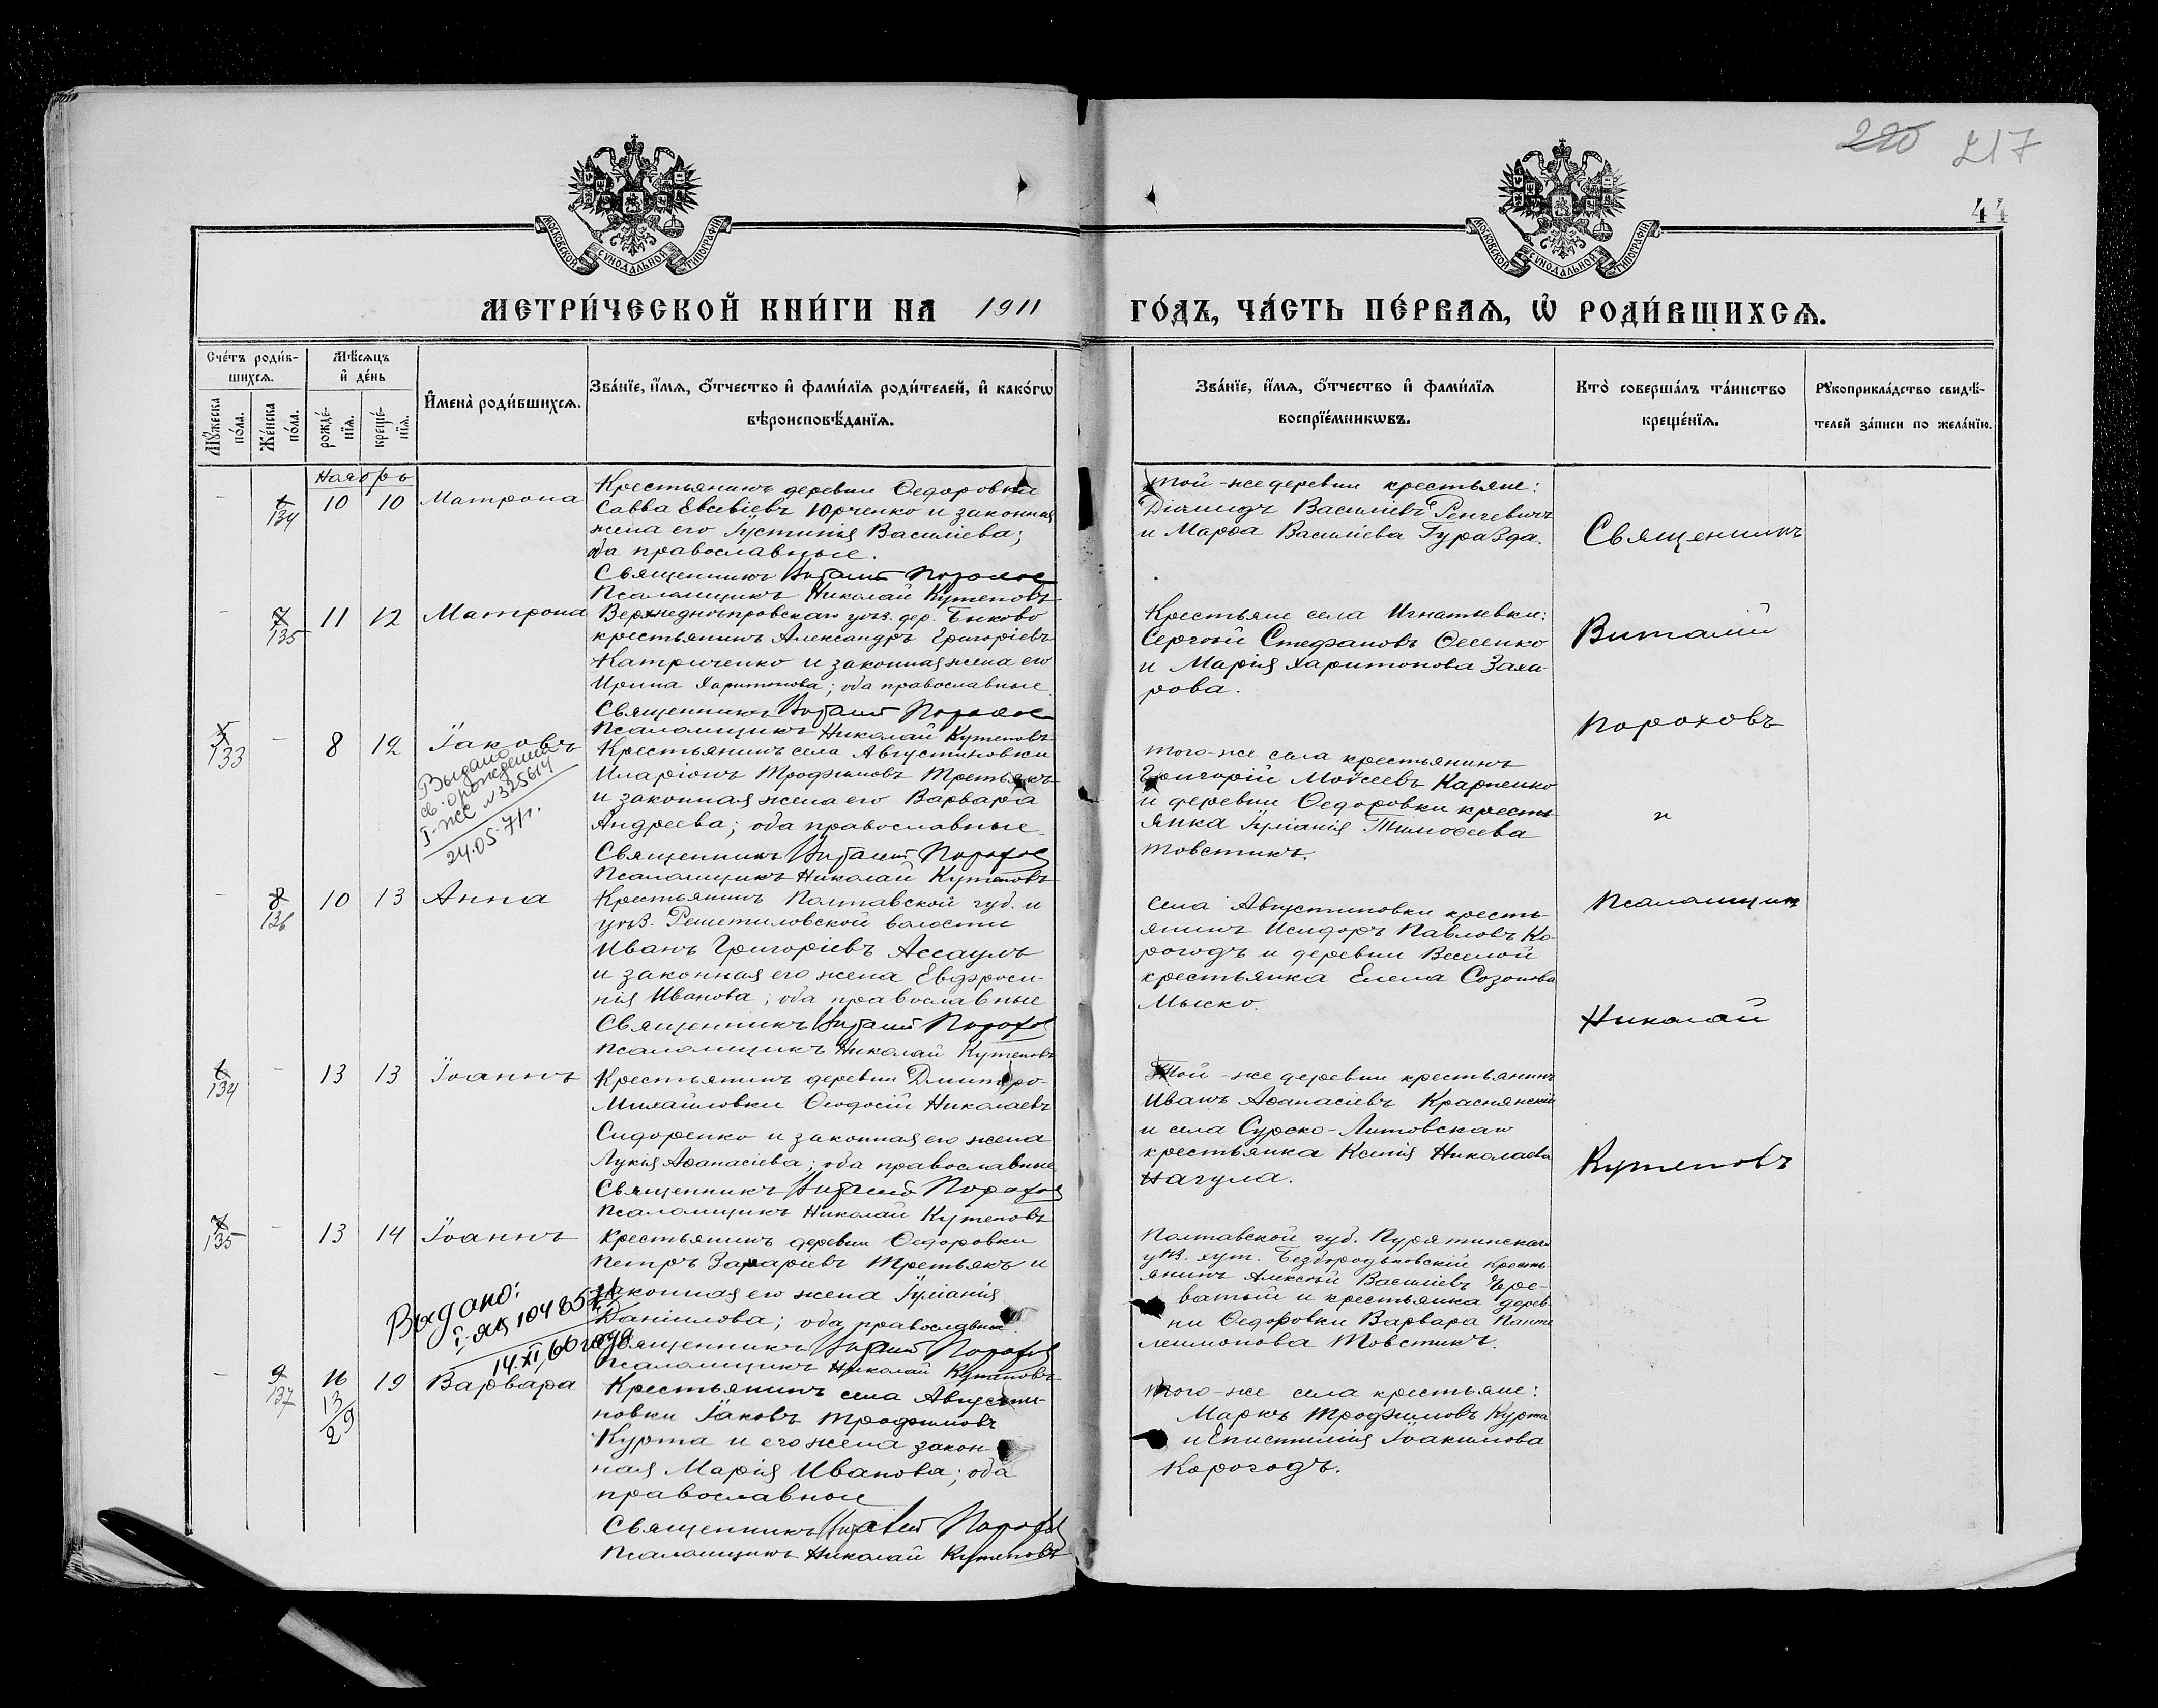 220 217
44
МОСКОВСКОЙ СѴНОДАЛЬНОЙ ТИПОГРАФІИ
МОСКОВСКОЙ СѴНОДАЛЬНОЙ ТИПОГРАФІИ
МЕТРИ́ЧЕСКОЙ КНИ́ГИ НА 1911 ГО́ДЪ, ЧА́СТЬ ПЕ́РВАѦ, Ѡ҆ РОДИ́ВШИХСѦ.
Сче́тъ роди́в-
шихсѧ.
Мꙋ́жеска по́ла.
Же́нска по́ла.
Мѣ́сѧцъ
и҆ де́нь
рожде́-
нїѧ.
креще́-
нїѧ.
И҆мена̀ роди́вшихсѧ.
Зва́нїе, и҆́мѧ, ѻ҆́тчество и҆ фами́лїѧ роди́телей, и҆ како́гѡ
вѣроисповѣ́данїѧ.
Зва́нїе, и҆́мѧ, ѻ҆́тчество и҆ фами́лїѧ
воспрїе́мникѡвъ.
Кто̀ соверша́лъ та́инство
креще́нїѧ.
Рꙋкоприкла́дство свидѣ́-
телей за́писи по жела́нїю.
Наябрь
- 6 134 10 10 Матрона
Крестьянинъ деревни Ѳедоровки
Савва Евсевіевъ Юрченко и законная
жена его Іустинія Василіева;
оба православные.
Священникъ Виталій Пороховъ
Псаломщикъ Николай Кутеповъ
той-же деревни крестьяне:
Діомидъ Василіевъ Ренчевичъ
и Марѳа Василіева Гуразда.
- 7 135 11 12 Матрона
Верхнеднѣпровскаго уѣз. дер. Быково
крестьянинъ Александръ Григоріевъ
Катриченко и законная жена его
Ирина Харитонова; оба православные
Священникъ Виталій Пороховъ
Псаломщикъ Николай Кутеповъ
Крестьяне села Игнатьевки:
Сергѣй Стефановъ Ѳесенко
и Марія Харитонова Заха-
рова.
5 133 - 8 12 Іаковъ
Выдано
св. о рождении
I-ЖС №325614
24.05.71г.
Крестьянинъ села Августиновки
Иларіонъ Трофимовъ Третьякъ
и законная жена его Варвара
Андреева; оба православные
Священникъ Виталій Пороховъ
Псаломщикъ Николай Кутеповъ
того-же села крестьянинъ
Григорій Моѵсеевъ Карпенко
и деревни Ѳедоровки кресть-
янка Іуліанія Тимоѳеева
Товстикъ.
- 8 136 10 13 Анна
Крестьянинъ Полтавской губ. и
уѣз. Решетиловской волости
Иванъ Григоріевъ Ассаулъ
и законная его жена Евфроси-
нія Иванова; оба православные
Священникъ Виталій Пороховъ
Псаломщикъ Николай Кутеповъ
Села Августиновки кресть-
янинъ Исидоръ Павловъ Ко-
рогодъ и деревни Веселой
крестьянка Елена Созонова
Мыско.
6 134 - 13 13 Іоаннъ
Крестьянинъ деревни Дмитро-
Михайловки Ѳеодосій Николаевъ
Сидоренко и законная его жена
Лукія Аѳанасіева; оба православные
Священникъ Виталій Пороховъ
Псаломщикъ Николай Кутеповъ
Той-же деревни крестьянинъ
Иванъ Аѳанасіевъ Краснянскій
и села Сурско-Литовскаго
крестьянка Ксенія Николаева
Нагула.
7 135 - 13 14 Іоаннъ
Выдано:
I-ЯЦ 1048571
14.XI,60 года
Крестьянинъ деревни Ѳедоровки
Петръ Захаріевъ Третьякъ и
законная его жена Іуліанія
Даніилова; оба православные
Священникъ Виталій Пороховъ
Псаломщикъ Николай Кутеповъ
Полтавской губ. Пирятинскаго
уѣз. хут. Безбородьковскій кресть-
янинъ Алексѣй Василіевъ
и крестьянка дерев-
ни Ѳедоровки Варвара Панте-
леимонова Товстикъ.
- 9 137 16 19 Варвара
13
29
Крестьянинъ села Августи-
новки Іаковъ Трофимовъ
Курта и его жена закон-
ная Марія Иванова; оба
православные
Священникъ Виталій Пороховъ
Псаломщикъ Николай Кутеповъ
того-же села крестьяне:
Маркъ Трофимовъ Курта
и Епистимія Іоакимова
Корогодъ.
Священникъ
Виталій
Пороховъ
и
Псаломщикъ
Николай
Кутеповъ